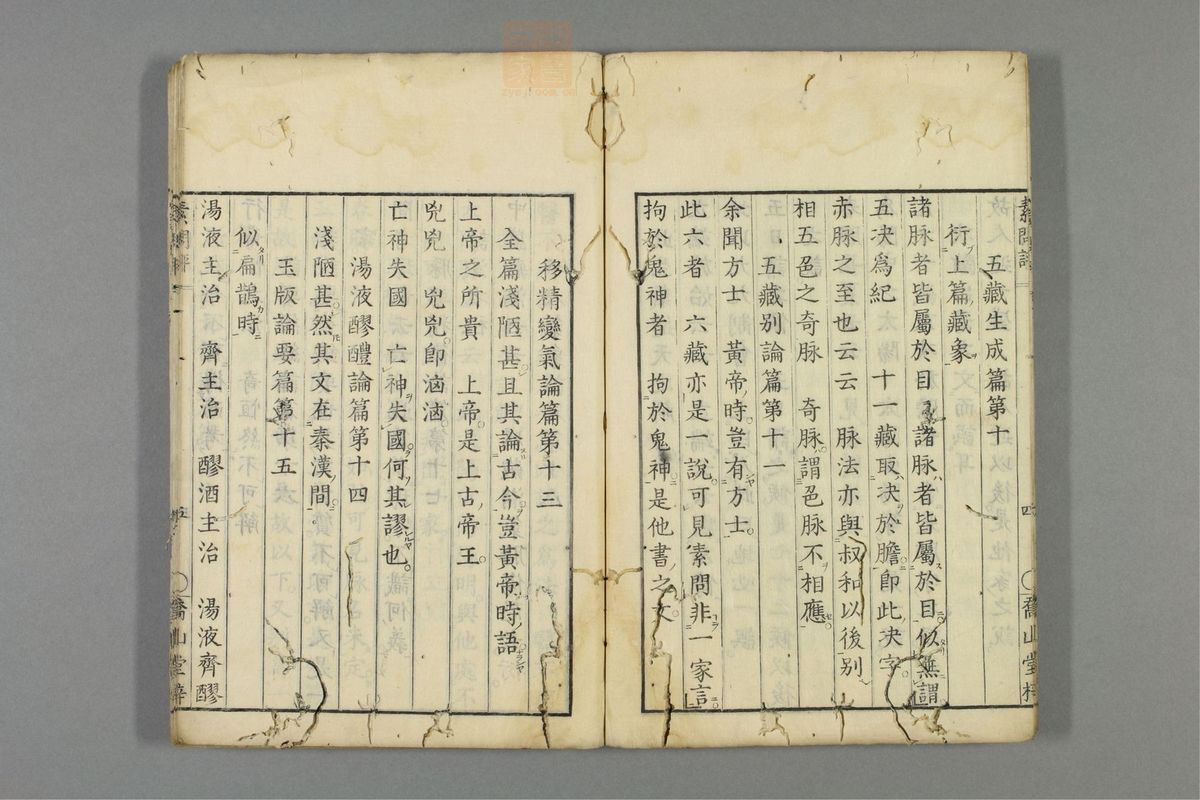 素問評
五藏生成篇第十
衍上篇藏象
諸脉者皆屬於目 諸脉者皆屬於目似無謂
五决爲紀 十一藏取决於膽即此决字
赤脉之至也云云 脉法亦與叔和以後别
相五邑之奇脉 奇脉謂邑脉不相應
五藏别論篇第十一
余聞方士 黄帝時豈有方士
此六者 六藏亦是一說可見素問非一家言
拘於鬼神者 拘於鬼神是他書之文
移精變氣論篇第十三
全篇淺陋甚且其論古今豈黄帝時語
上帝之所貴 上帝是上古帝王
兇兇 兇兇卽滷滷
亡神失國 亡神失國何其謬也
湯液醪醴論篇第十四
淺陋甚然其文在秦漢間
玉版論要篇第十五
似扁鵲時
湯液主治 齊主治 醪酒主治 湯液齊醪
素問評 五 喬山堂梓